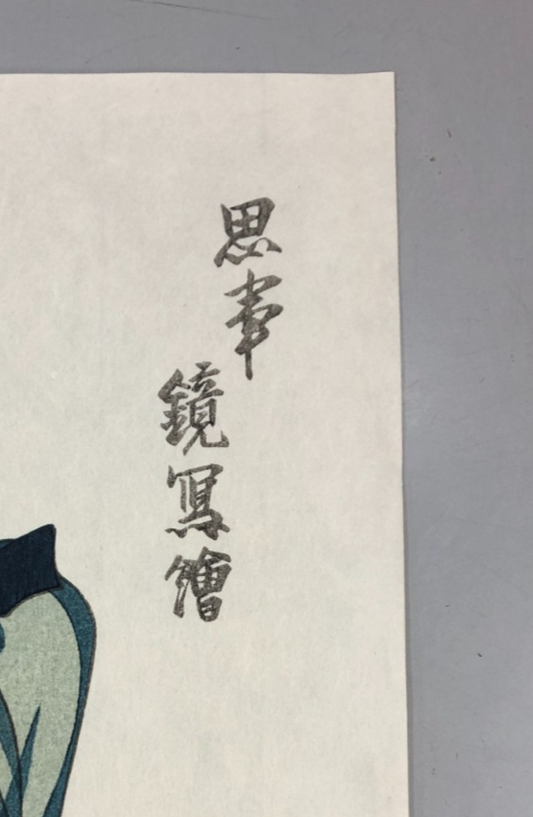 思事
鏡写繪